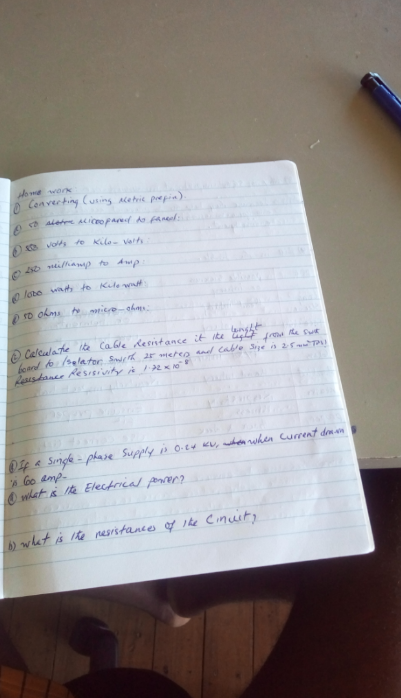 Home work
① Converting (using Metric prefix)
50 Microfarad to farad.
volts to Kilo-volts
250 milliamp to Amp.
1000 watts to Kilowatt
50 Ohms to micro-ohms.
② Calculate the Cable Resistance if the lenght from the
board to Isolator Switch 25 meters and Cable Size is 2.5 mm²
Resistivity is 1.72 x 10⁻⁸
If a Single-phase Supply is 0.24 KV, when current drawn
is 60 amp-
a) What is the Electrical power?
b) what is the resistances of the Circuit?